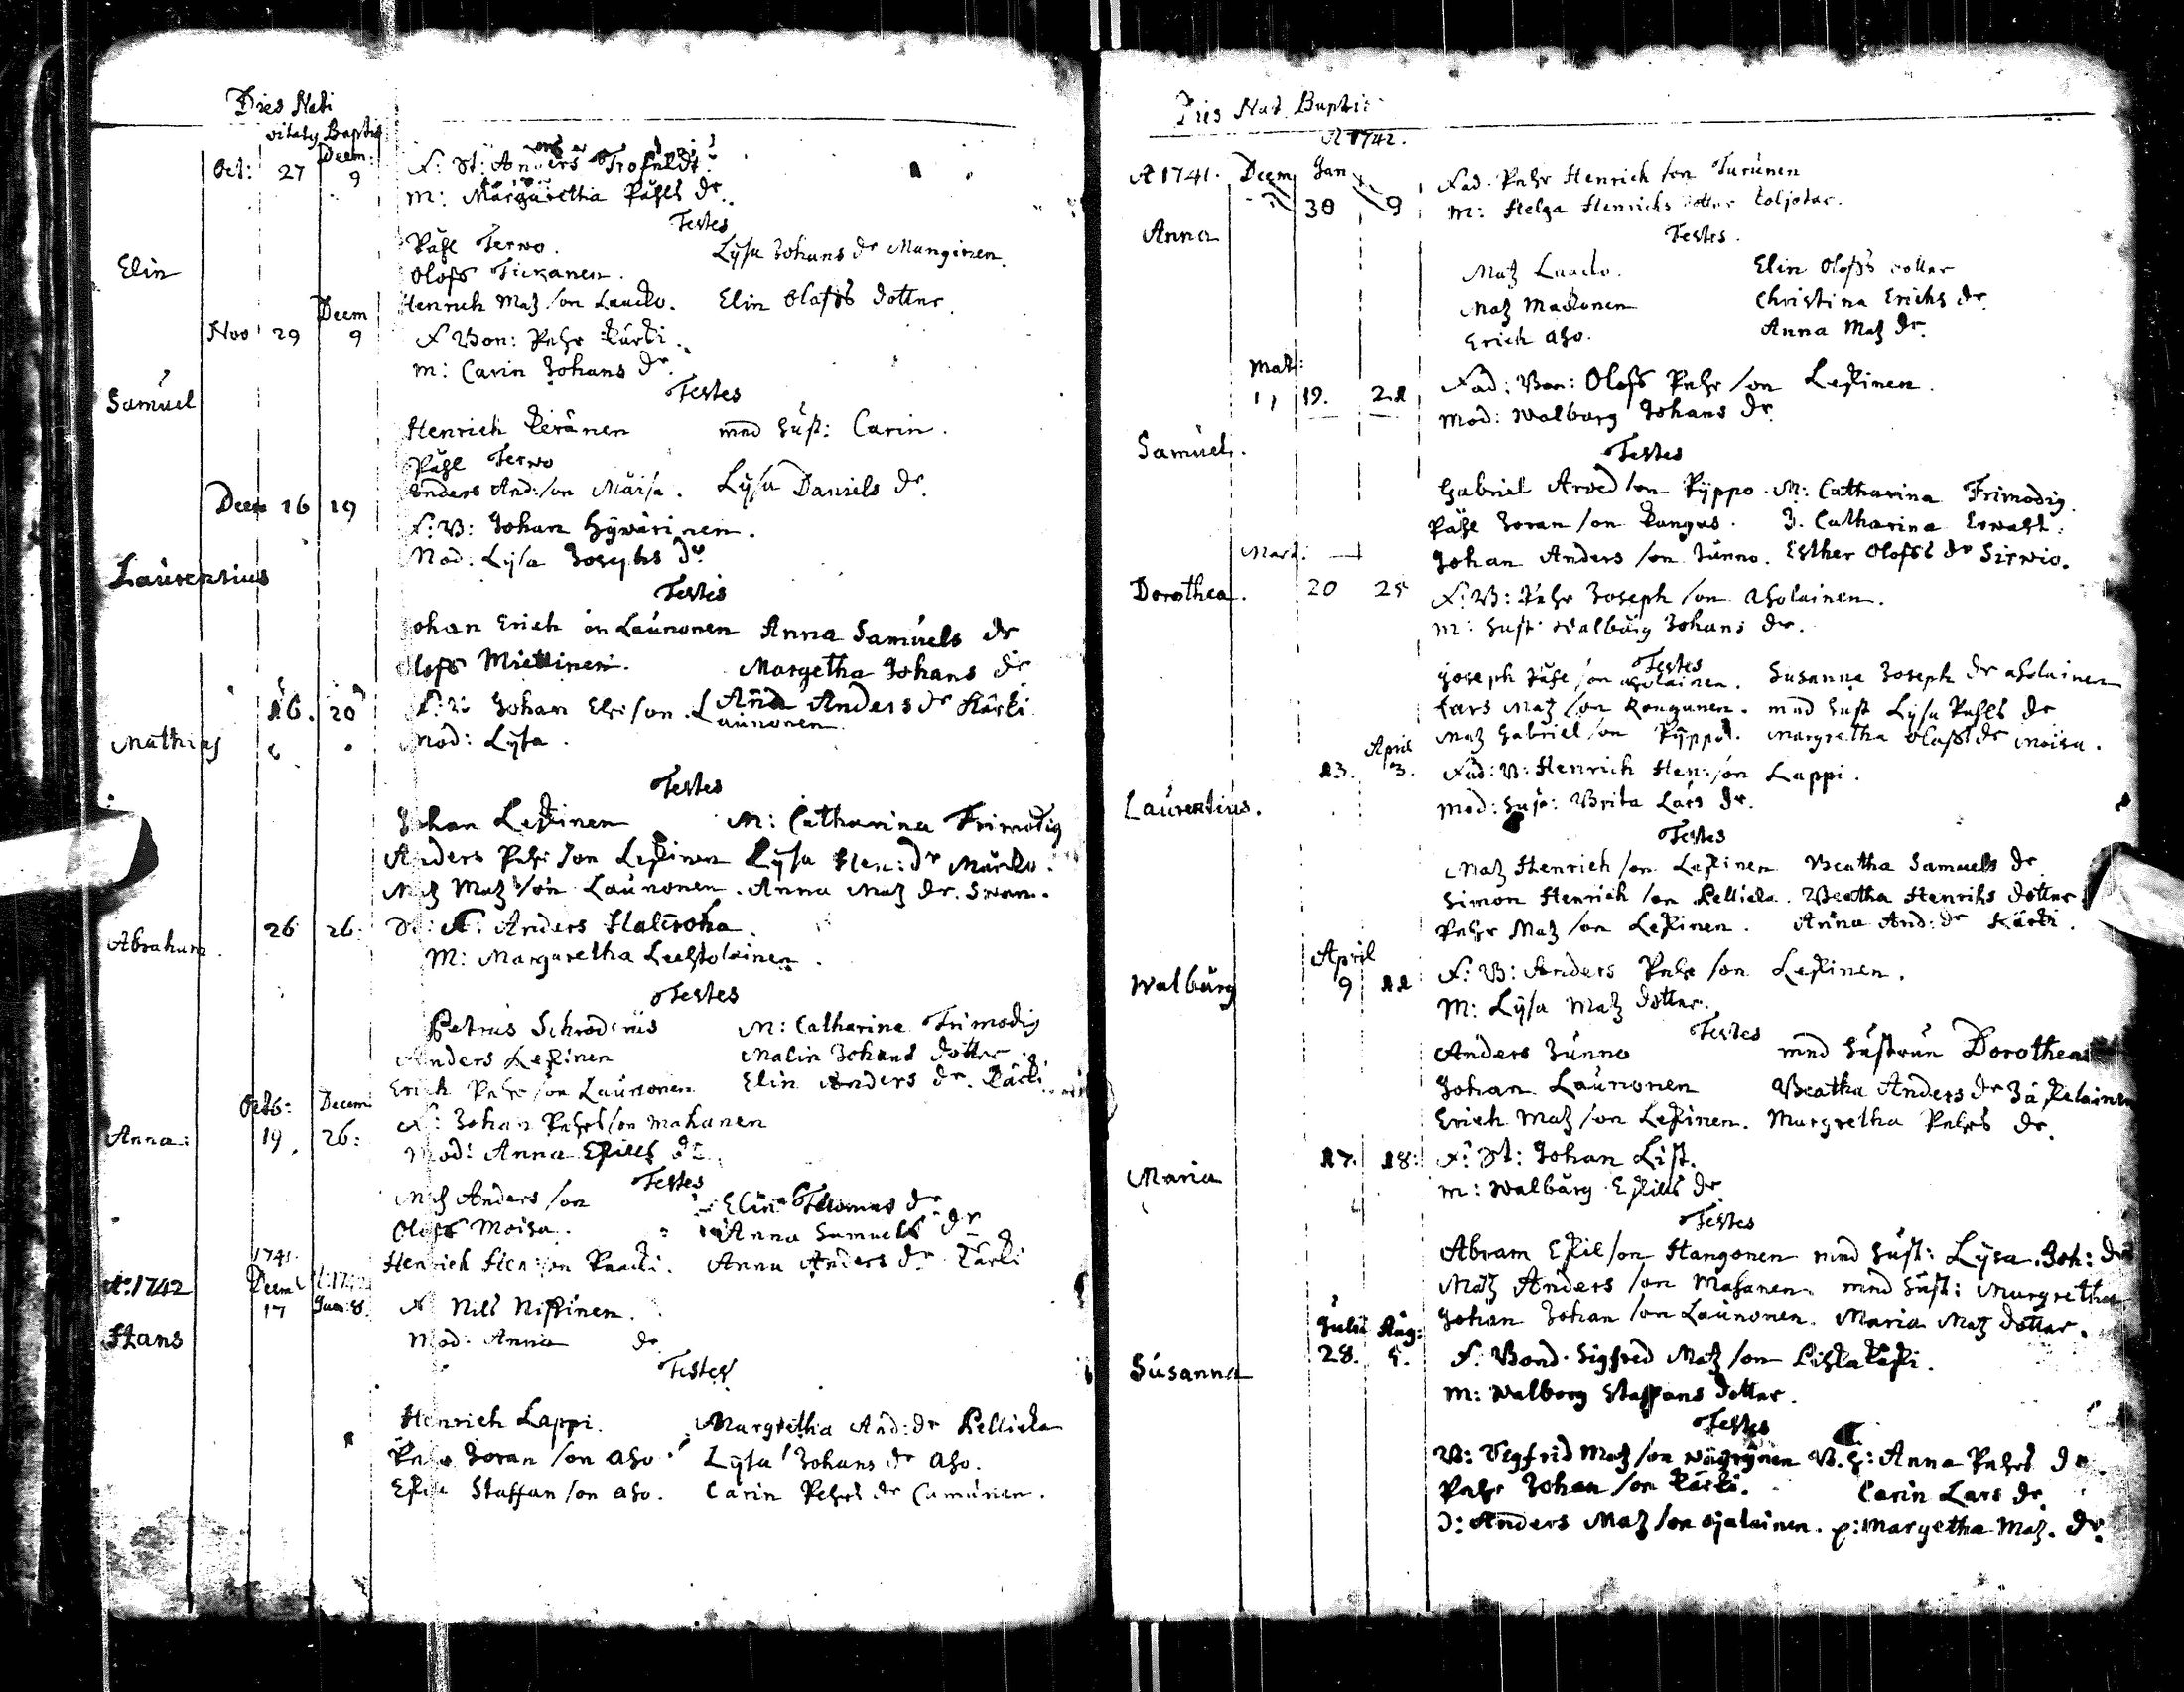 Dies Nati
vitaly Baptis
Oct: 27 Decm: 9 F: St: Anders
M: Margaretha Påhls dr.
Testes
Påhl Terwo. Lysa Johans dr Manginen.
Elin
Oloff Tickanen.
Henrich Matz son Laucko. Elin Oloffs dotter
Nov 29 Decm 9 F Bon: Pehr Kärki.
M: Carin Johans dr.
Testes
Samuel
Henrich Keränen med hust: Carin.
Påhl Terwo
Anders And: son Moisa. Lysa Daniels dr.
Decm 16 19 F: B: Johan Hywärinen.
Mod: Lysa Josephs dr
Laurentius
Testes
Johan Erich son Launonen Anna Samuels dr
Oloff Miettinen. Margetha Johans dr
16. 20 F: B: Johan Eri son Launonen Anna Anders dr Kärki
Mathias Mod: Lysa.
Testes
Johan Leskinen M: Catharina Frimodig
Anders Pehr son Leskinen Lysa Hen: dr
Matz Matz son Launonen. Anna Matz dr.
Abraham. 26 26: St: F: Anders
M: Margaretha
Testes
Petrus Schroderus M: Catharina Frimodig
Anders Leskinen Malin Johans dotter
Erich Pehr son Launonen Elin Anders dr. Kärki
Octb: Decem
Anna: 19. 26: F: Johan Pehrs son Mahanen
Mod: Anna Eskills dr.
Testes
Matz Anders son Elin Thomas dr
Oloff Moisa. Anna Samuels dr
Henrich Hen: son Anna Anders dr Kärki
1741.
Ao: 1742 Decm
17 Jan: 8. F Nills Niskinen.
Hans Mod: Anna dr
Testes
Henrich Lappi. Margretha And: dr Pellicka
Pehr Joran son Aho Lysa Johans dr Aho.
Eskil Staffan son Aho. Carin Pehrs dr Camunen.
Dies Nat Baptis
A 1742.
A 1741. Decm Jan Fad. Pehr Henrich son Turunen
30 9 M: Helga Henrichs dotter
Anna
Testes.
Matz Laucko. Elin Oloffs dotter
Matz Makonen Christina Erichs dr.
Erich Aho. Anna Matz dr.
Mart:
19. 21 Fad: Bon: Oloff Pehr son Leskinen.
Mod: Walborg Johans dr.
Samuel.
Testes
Gabriel Arved son Pyppo. M: Catharina Frimodig.
Påhl Joran son Kangas. J. Catharina Erwast.
Mart: Johan Anders son Junno. Esther Oloffs dr Sirwio.
Dorothea. 20 25 F: B: Pehr Joseph son Aholainen.
M: hust Walburg Johans dr.
Testes
Joseph Påhl son Aholainen. Susanna Joseph dr Aholainen
Lars Matz son Kongunen. med hust Lysa Påhls dr
Matz Gabriel son Pyppo. Margretha Oloffs dr Moisa.
April
23. 3. Fad: B: Henrich Hen: son Lappi.
Laurentius. Mod: hust: Brita Lars dr.
Testes
Matz Henrich son Leskinen Beatha Samuels dr
Simon Henrich son Pellicka. Beatha Henrihs dotter
Pehr Matz son Leskinen. Anna And: dr Kärki.
April
Walburg 9 11 F: B: Anders Pehr son Leskinen.
M: Lysa Matz dotter.
Testes
Anders Junno med hustrun Dorothea
Johan Launonen Beatha Anders dr
Erich Matz son Leskinen. Margretha Pehrs dr.
17. 18: F: St: Johan List.
Maria M: Walburg Eskills dr.
Testes
Abram Eskil son Hangonen med hust: Lysa Joh: dr
Matz Anders son Mahanen. med hust: Margretha
Julii Aug: Johan Johan son Launonen. Maria Matz dotter.
Susanna 28. 5. F. Bond. Sigfred Matz son
M: Walborg Staffans dotter.
Testes
B: Segfrid Matz son Wäyrynen B. h: Anna Pehrs dr.
Pehr Johan son Kärki. Carin Lars dr.
D: Anders Matz son Ojalainen. p: Margetha Matz. dr.